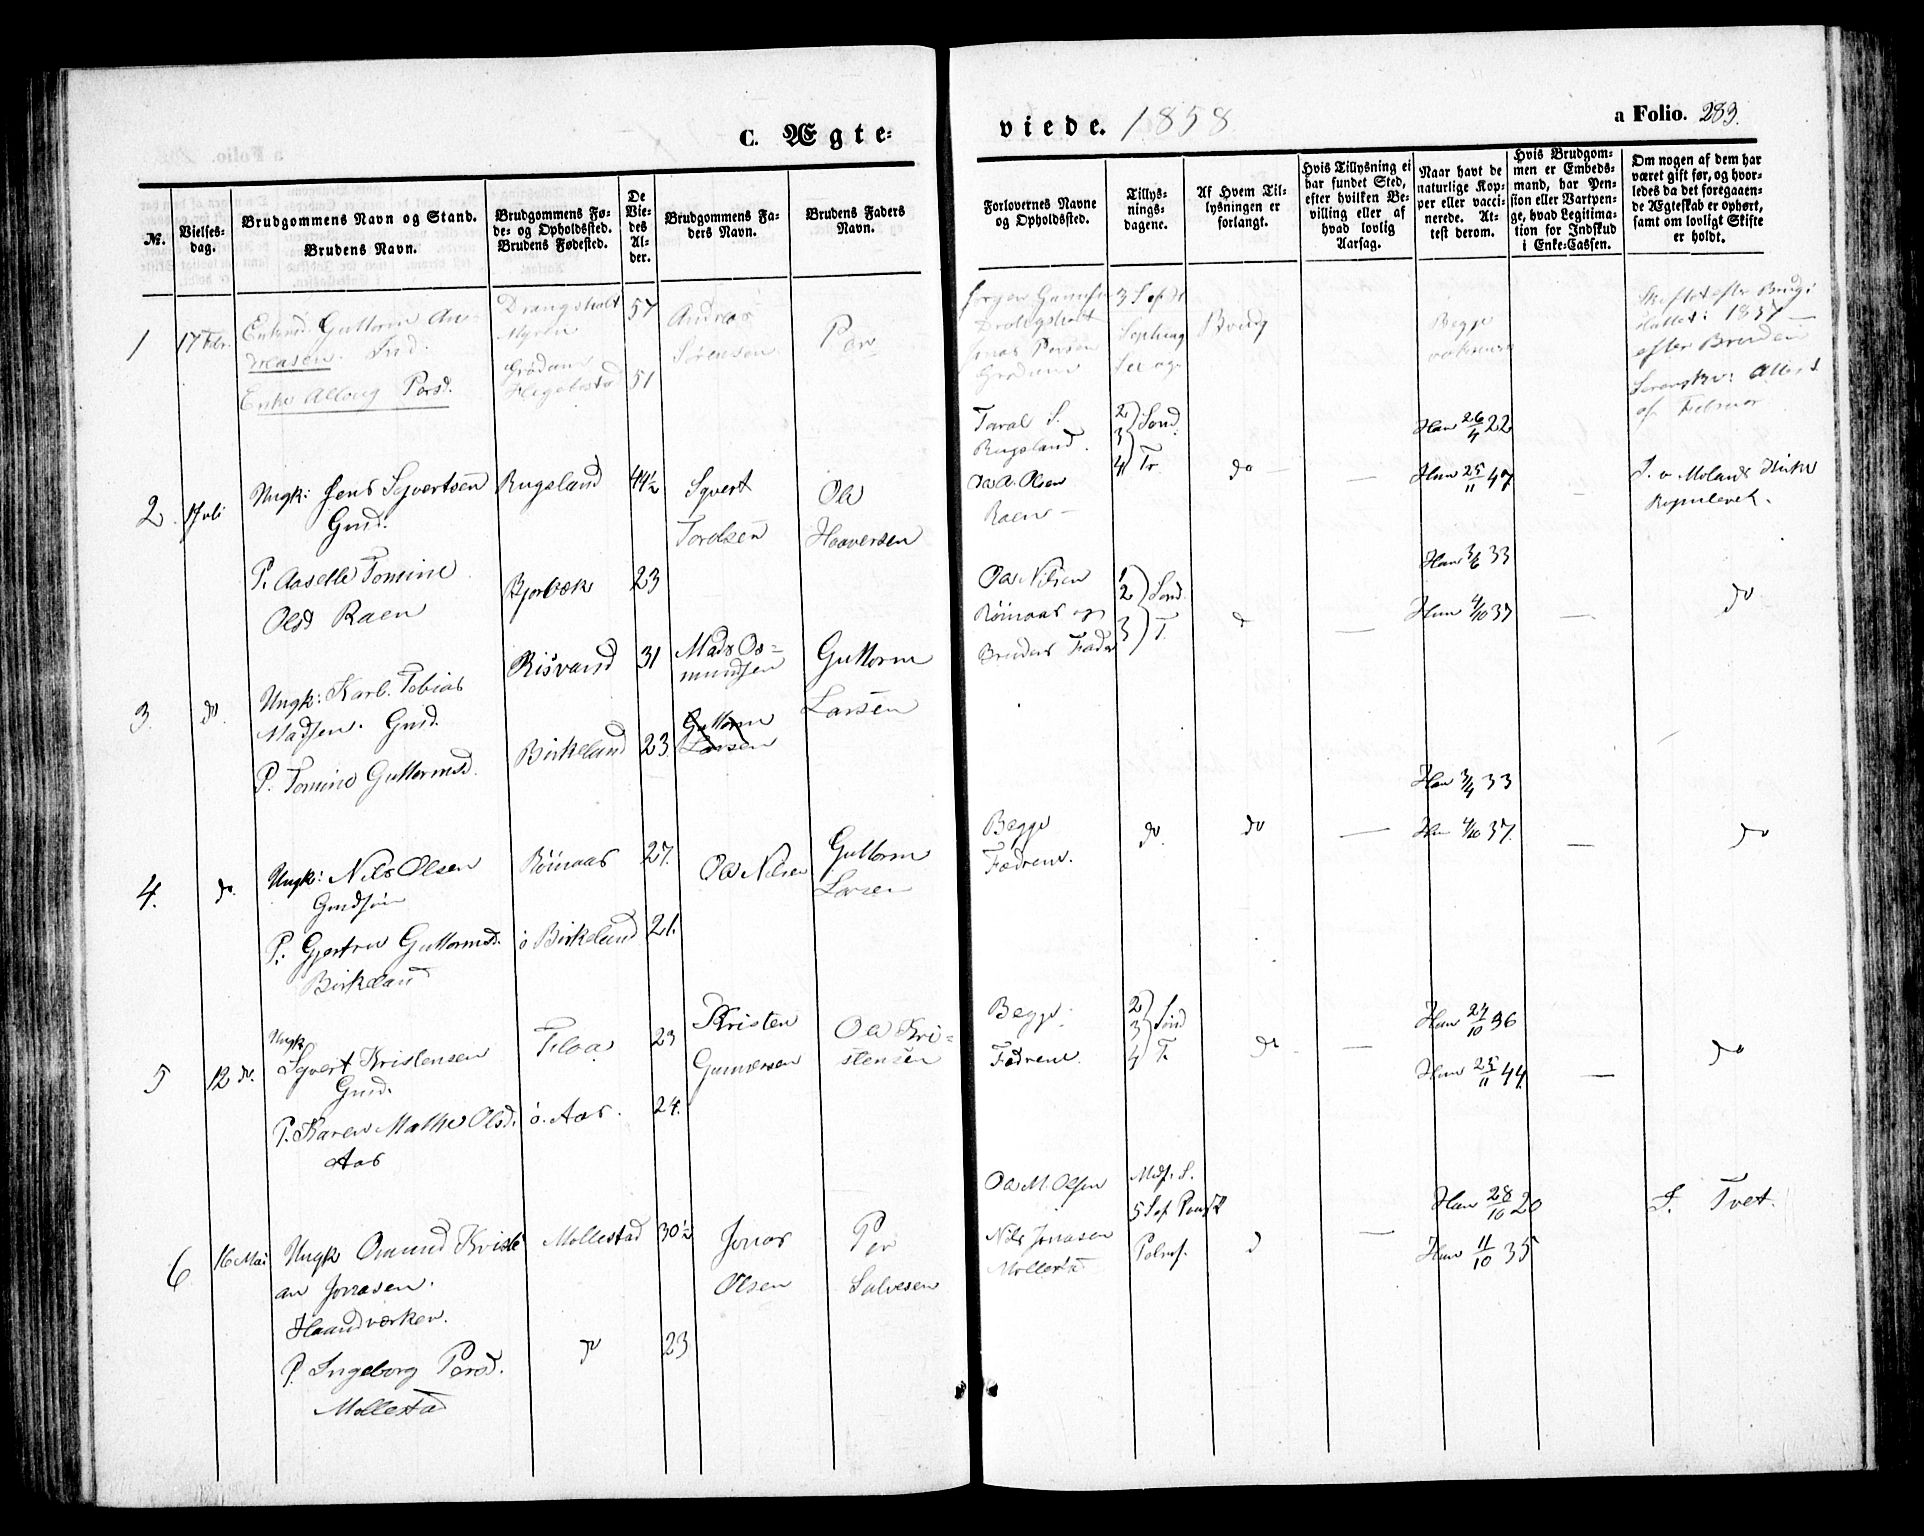 C. Ægte-
viede. 1858
a Folio. 283.
№.
Vielses-
dag.
Brudgommens Navn og Stand.
Brudens Navn.
Brudgommens Fø-
de- og Opholdssted.
Brudens Fødested.
De
Vie-
des
Al-
der.
Brudgommens Fa-
ders Navn.
Brudens Faders
Navn.
Forlovernes Navne
og Opholdssted.
Tillys-
nings-
dagene.
Af Hvem Til-
lysningen er
forlangt.
Hvis Tillysning ei
har fundet Sted,
efter hvilken Be-
villing eller af
hvad lovlig
Aarsag.
Naar havt de
naturlige Kop-
per eller vacci-
nerede. At-
test derom.
Hvis Brudgom-
men er Embeds-
mand, har Pen-
sion eller Vartpen-
ge, hvad Legitima-
tion for Indskud
i Enke-Cassen.
Om nogen af dem har
været gift før, og hvor-
ledes da det foregaaen-
de Ægteskab er ophørt,
samt om lovligt Skifte
er holdt.
1
17 Febr.
Enkemd Guttorm An-
dreasen Ind.
Enke Allong Persd.
Drangsholt
Myren
Grødum
Hegelstad
57
51
Andreas
Sørensen
Per
Jonas Persen
Grødum
3 Sept
Brudg
Begge
1857
efter Bruden
af Februar
2.
1 Juli
Ungk: Jens Syvertsen
Gmd.
P. Aaselle Tomine
Olsd Raen
Rugsland
Bjorbæk
44½
23
Syvert
Torolsen
Ole
Haaversen
Taral S.
Rugsland.
Ole A. Olsen
Raen
2
3
4
Sønd.
Tr.
do
Han 26/4 22
Hun 25/11 47
I. v. Molands Kirke
Kopuleret.
3.
do.
Ungk: Karl Tobias
Madsen. Gmd.
P. Tomine Guttormsd.
Risvand
Birkeland
31
23.
Mads Os-
mundsen
Guttorm
Larsen
Guttorm
Larsen
Ole Nilsen
Røinaas og
Brudens Fader
1
2
3
Sønd
T.
d
Han 3/6 33
Hun 4/10 37
do
4.
do.
Ungk: Nils Olsen
Gmdsøn
P. Gjertru Guttormsd.
Birkeland
Røinaas
ö Birkeland
27.
21.
Ole Nilsen
Guttorm
Larsen
Begge
Fædrene.
do.
do
Han 3/4 33
Hun 4/10 37.
do
5
12 do.
Ungk
Syvert Kristensen
Gmd.
P. Karen Mathe Olsd.
Aas
Floa
ö. Aas.
23
24.
Kristen
Gunnersen
Ole Kri-
stensen
Begge
Fædrene.
2
3
4
Sønd
T.
do
Han 27/10 36
Hun 25/11 44.
do
6
16 Mai
Ungk Omund Kristi-
an Jonasen.
Haandværker.
P. Ingeborg Persd.
Mollestad
Mollestad
do
30½
23
Jonas
Olsen
Per
Salvesen
Ole M. Olsen
Nils Jonasen
Mollestad
d
Han 28/10 20
Hun 11/10 35
I. Tvet.